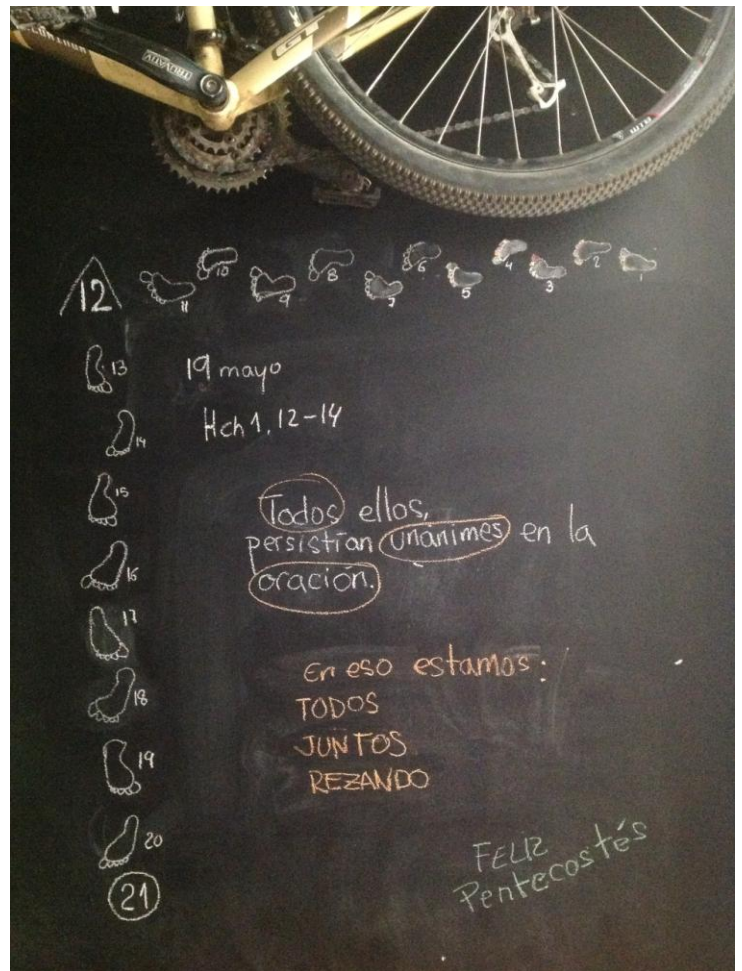 TRUVATIV
GT
WTB
12
11
10
9
8
7
6
5
4
3
2
1
13
14
15
16
17
18
19
20
21
19 mayo
Hch 1, 12-14
Todos ellos,
persistían unánimes en la
oración.
En eso estamos:
TODOS
JUNTOS
REZANDO
FELIZ
Pentecostés